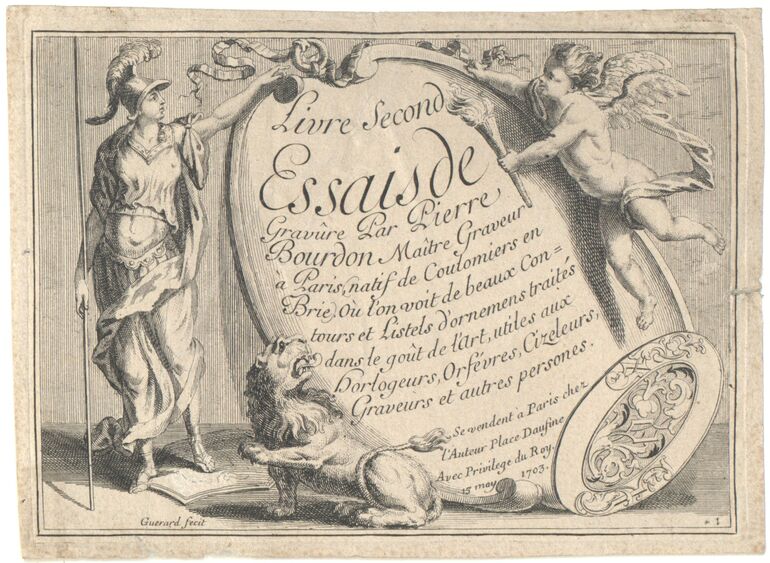 Livre Second
Essais de
Gravûre Par Pierre
Bourdon Maître Graveur
à Paris, (natif de Coulomiers en
Brie) Où l'on voit de beaux Con=
tours et Listels d'ornemens traités
dans le goût de l'Art, utiles aux
Horlogeurs, Orfévres, Cizeleurs,
Graveurs et autres persones.
Se vendent a Paris chez
l'Auteur Place Daufine
Avec Privilege du Roy.
15 may 1703.
Guerard fecit
1